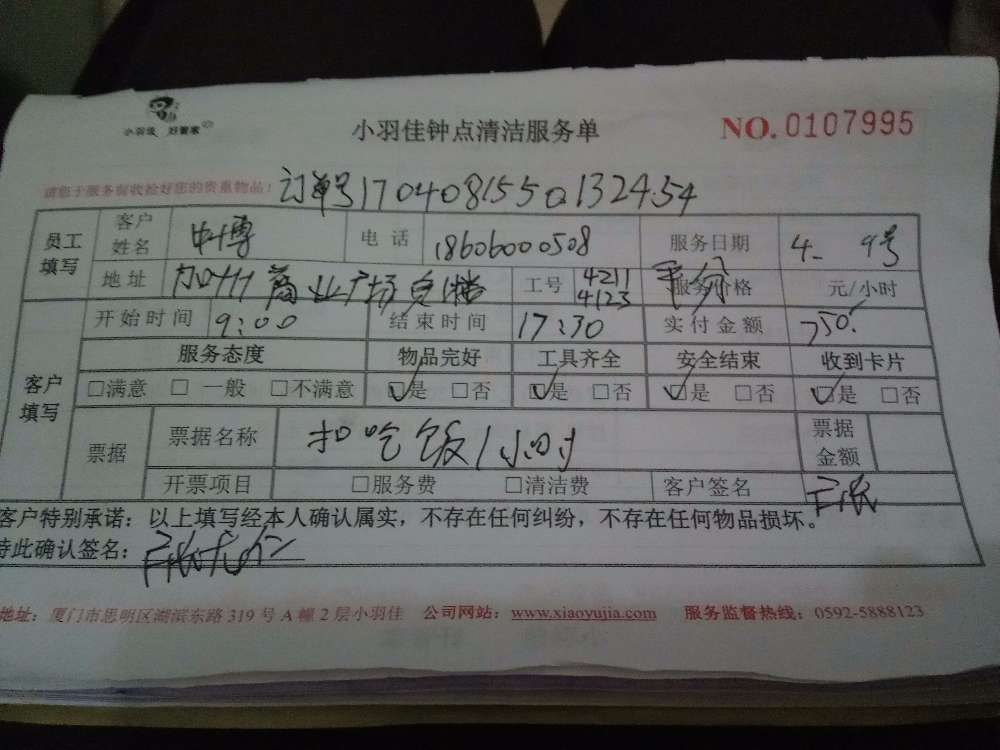 小羽佳 好管家
小羽佳钟点清洁服务单
NO.0107995
请您于服务前收拾好您的贵重物品!
订单号17040815501324454
员工填写 客户姓名 中博 电话 18606000508 服务日期 4- 9号
地址 加州商业广场 工号 4211 4123 服务价格 平分 元/小时
客户填写 开始时间 9:00 结束时间 17:30 实付金额 750.
服务态度 物品完好 工具齐全 安全结束 收到卡片
□满意 □ 一般 □不满意 ☑是 □否 ☑是 □否 ☑是 □否 ☑是 □否
票据 票据名称 扣吃饭1小时 票据金额
开票项目 □服务费 □清洁费 客户签名
客户特别承诺:以上填写经本人确认属实,不存在任何纠纷,不存在任何物品损坏。
特此确认签名:
地址:厦门市思明区湖滨东路 319 号 A 幢 2 层小羽佳 公司网站:www.xiaoyujia.com 服务监督热线:0592-5888123